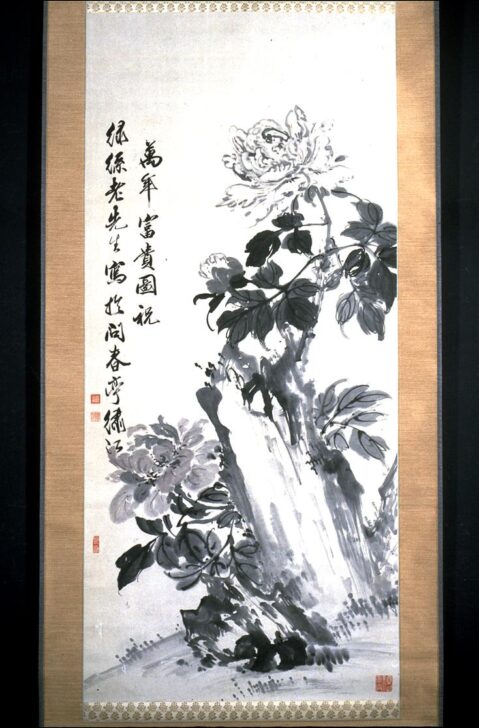 萬年富貴圖祝
綠孫老先生寫於问春亭繡江